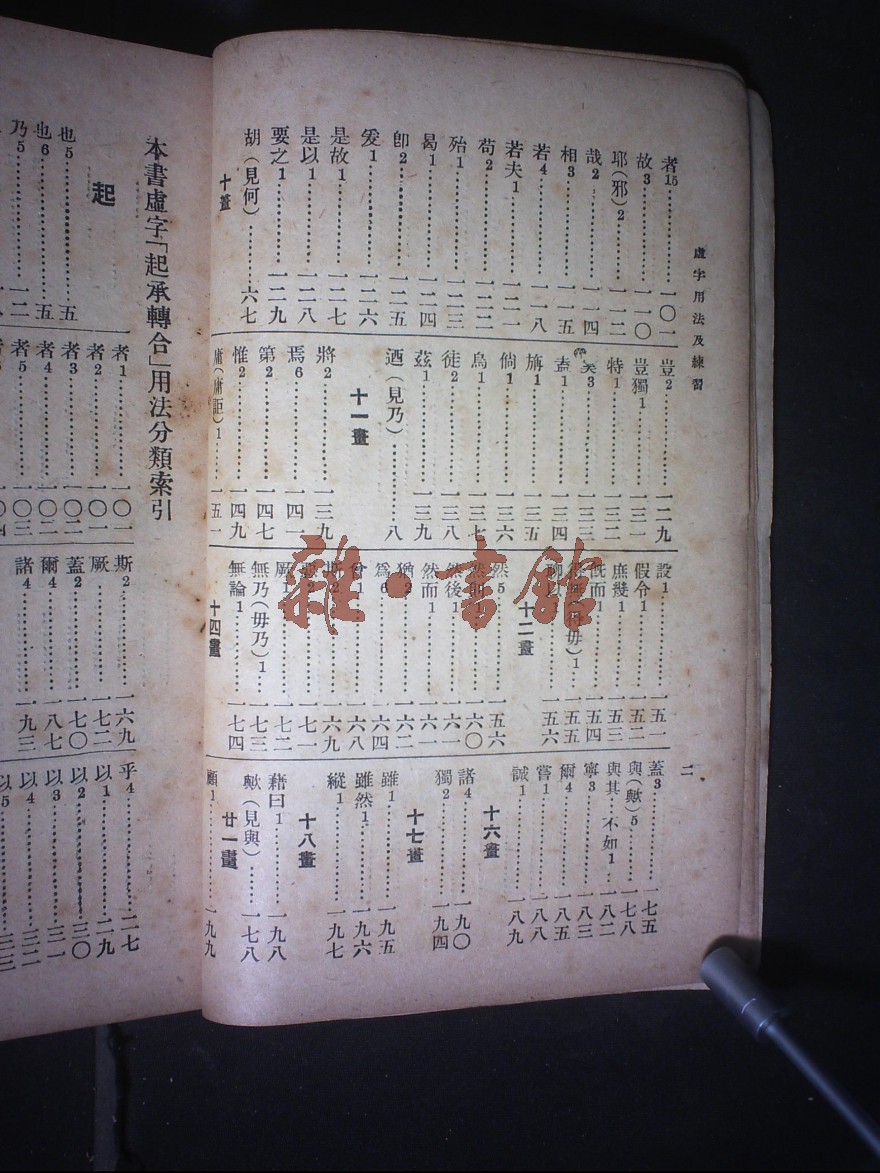 虛字用法及練習
二
者15…………一〇一
故3…………一一〇
耶(邪)2……一一二
哉2…………一一四
相3…………一一五
若4…………一一八
若夫1………一二一
苟2…………一二二
殆1…………一二三
曷1…………一二四
卽2…………一二五
爰1…………一二六
是故1………一二七
是以1………一二八
要之1………一二九
胡(見何)……六七
十畫
豈2…………一二九
豈獨1………一三一
特1…………一三二
矣3…………一三三
盍1…………一三四
旃1…………一三五
倘1…………一三六
烏1…………一三七
徒2…………一三八
茲1…………一三九
迺(見乃)……八
十一畫
將2…………一三九
焉6…………一四一
第2…………一四七
惟2…………一四九
庸(庸詎)1……一五一
設1…………一五一
假令1………一五二
庶幾1………一五三
旣而1………一五四
得無(得毋)1…一五五
聊以1………一五六
十二畫
然5…………一五六
然則1………一六〇
然後1………一六一
然而1………一六一
猶2…………一六二
爲6…………一六四
曾1…………一六八
斯2…………一六九
惡2…………一七一
厥1…………一七二
無乃(毋乃)1…一七三
無論1………一七四
十四畫
蓋3…………一七五
與(歟)5……一七八
與其…不如1…一八二
寧3…………一八三
爾4…………一八五
嘗1…………一八八
誠1…………一八九
十六畫
諸4…………一九〇
獨2…………一九四
十七畫
雖1…………一九五
雖然1………一九六
縱1…………一九七
十八畫
藉曰1………一九八
歟(見與)……一七八
廿一畫
顧1…………一九九
本書虛字「起承轉合」用法分類索引
起
也5…………五
也6…………五
乃5
者1…………一〇一
者2…………一〇一
者3…………一〇二
者4…………一〇二
者5…………一〇三
斯2…………一六九
厥1…………一七二
蓋2…………一七〇
爾4…………一八七
諸4…………一九三
乎4…………二七
以1…………二九
以2…………三〇
以3…………三一
以4…………三二
以5…………三三
雜·書館